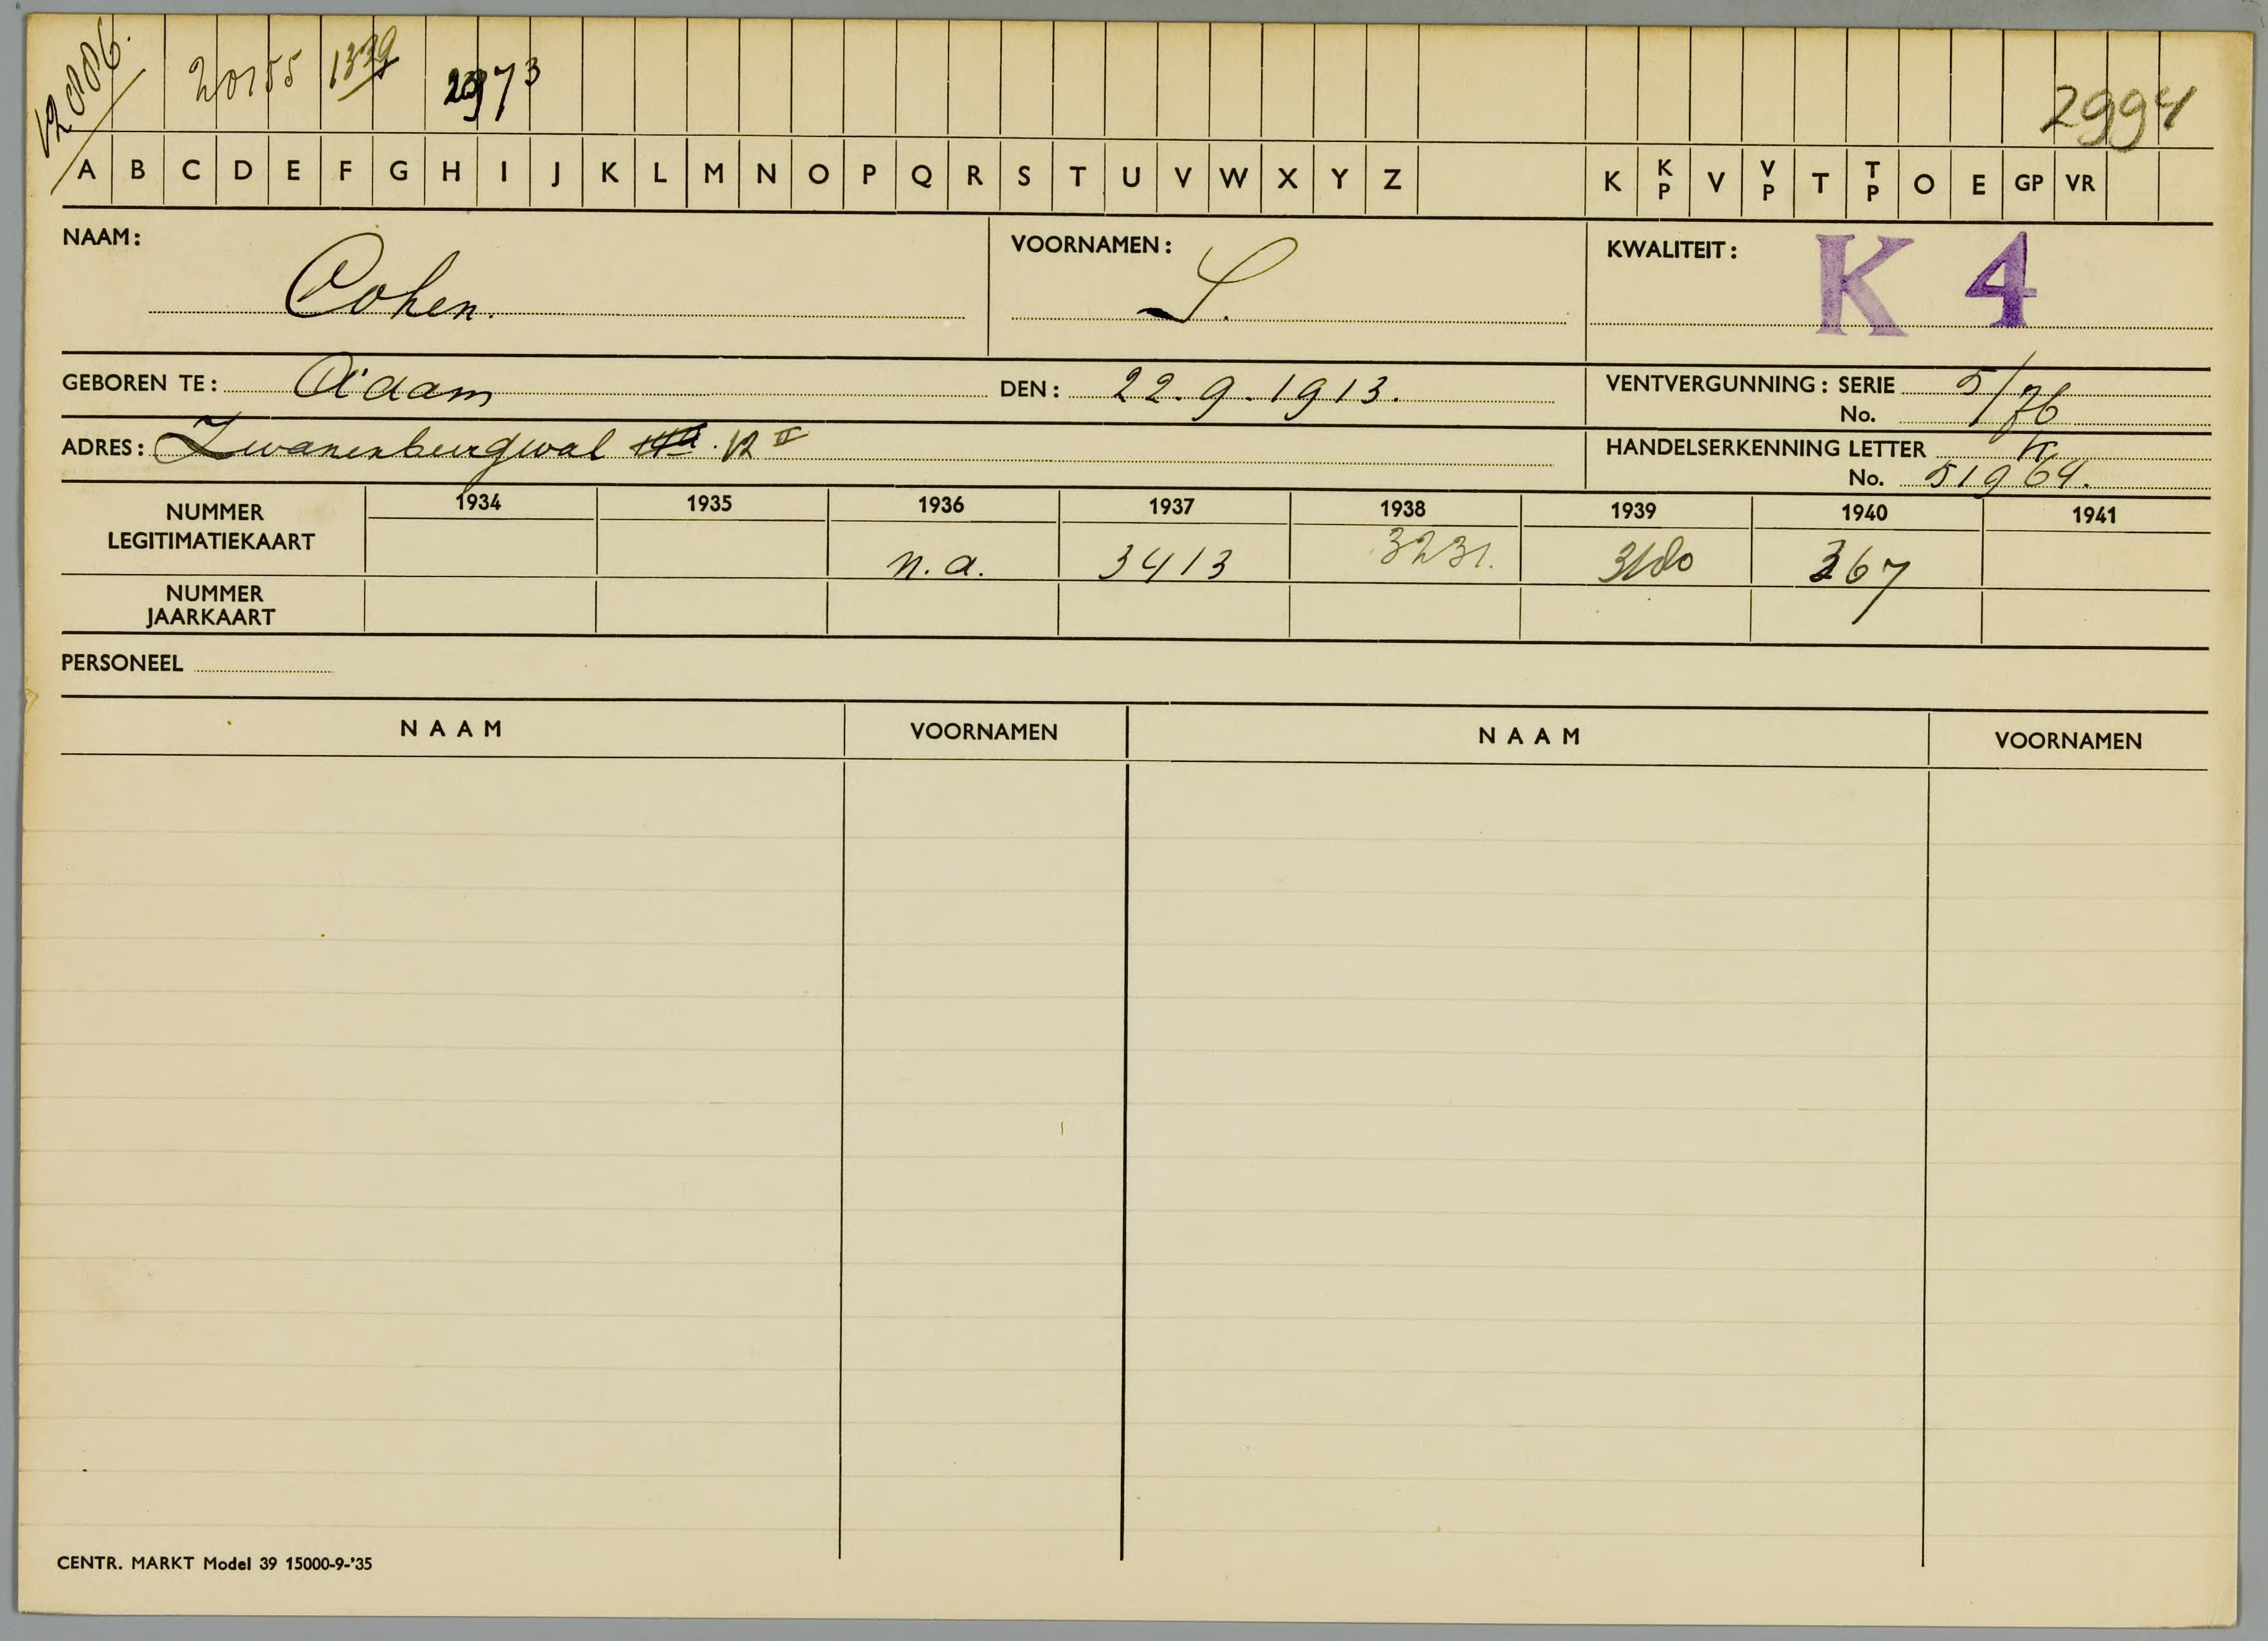 20155 1339 2973 2994
A B C D E F G H I J K L M N O P Q R S T U V W X Y Z K KP V VP T TP O E GP VR
NAAM: Cohen. VOORNAMEN: S. KWALITEIT: K 4
GEBOREN TE: A'dam DEN: 22.9.1913. VENTVERGUNNING: SERIE 5/76
No.
ADRES: Zwanenburgwal 12 II HANDELSERKENNING LETTER K
No. 51964.
NUMMER LEGITIMATIEKAART 1934 1935 1936 1937 1938 1939 1940 1941
n.a. 3413 3231. 3180 367
NUMMER JAARKAART
PERSONEEL
NAAM VOORNAMEN NAAM VOORNAMEN
CENTR. MARKT Model 39 15000-9-'35